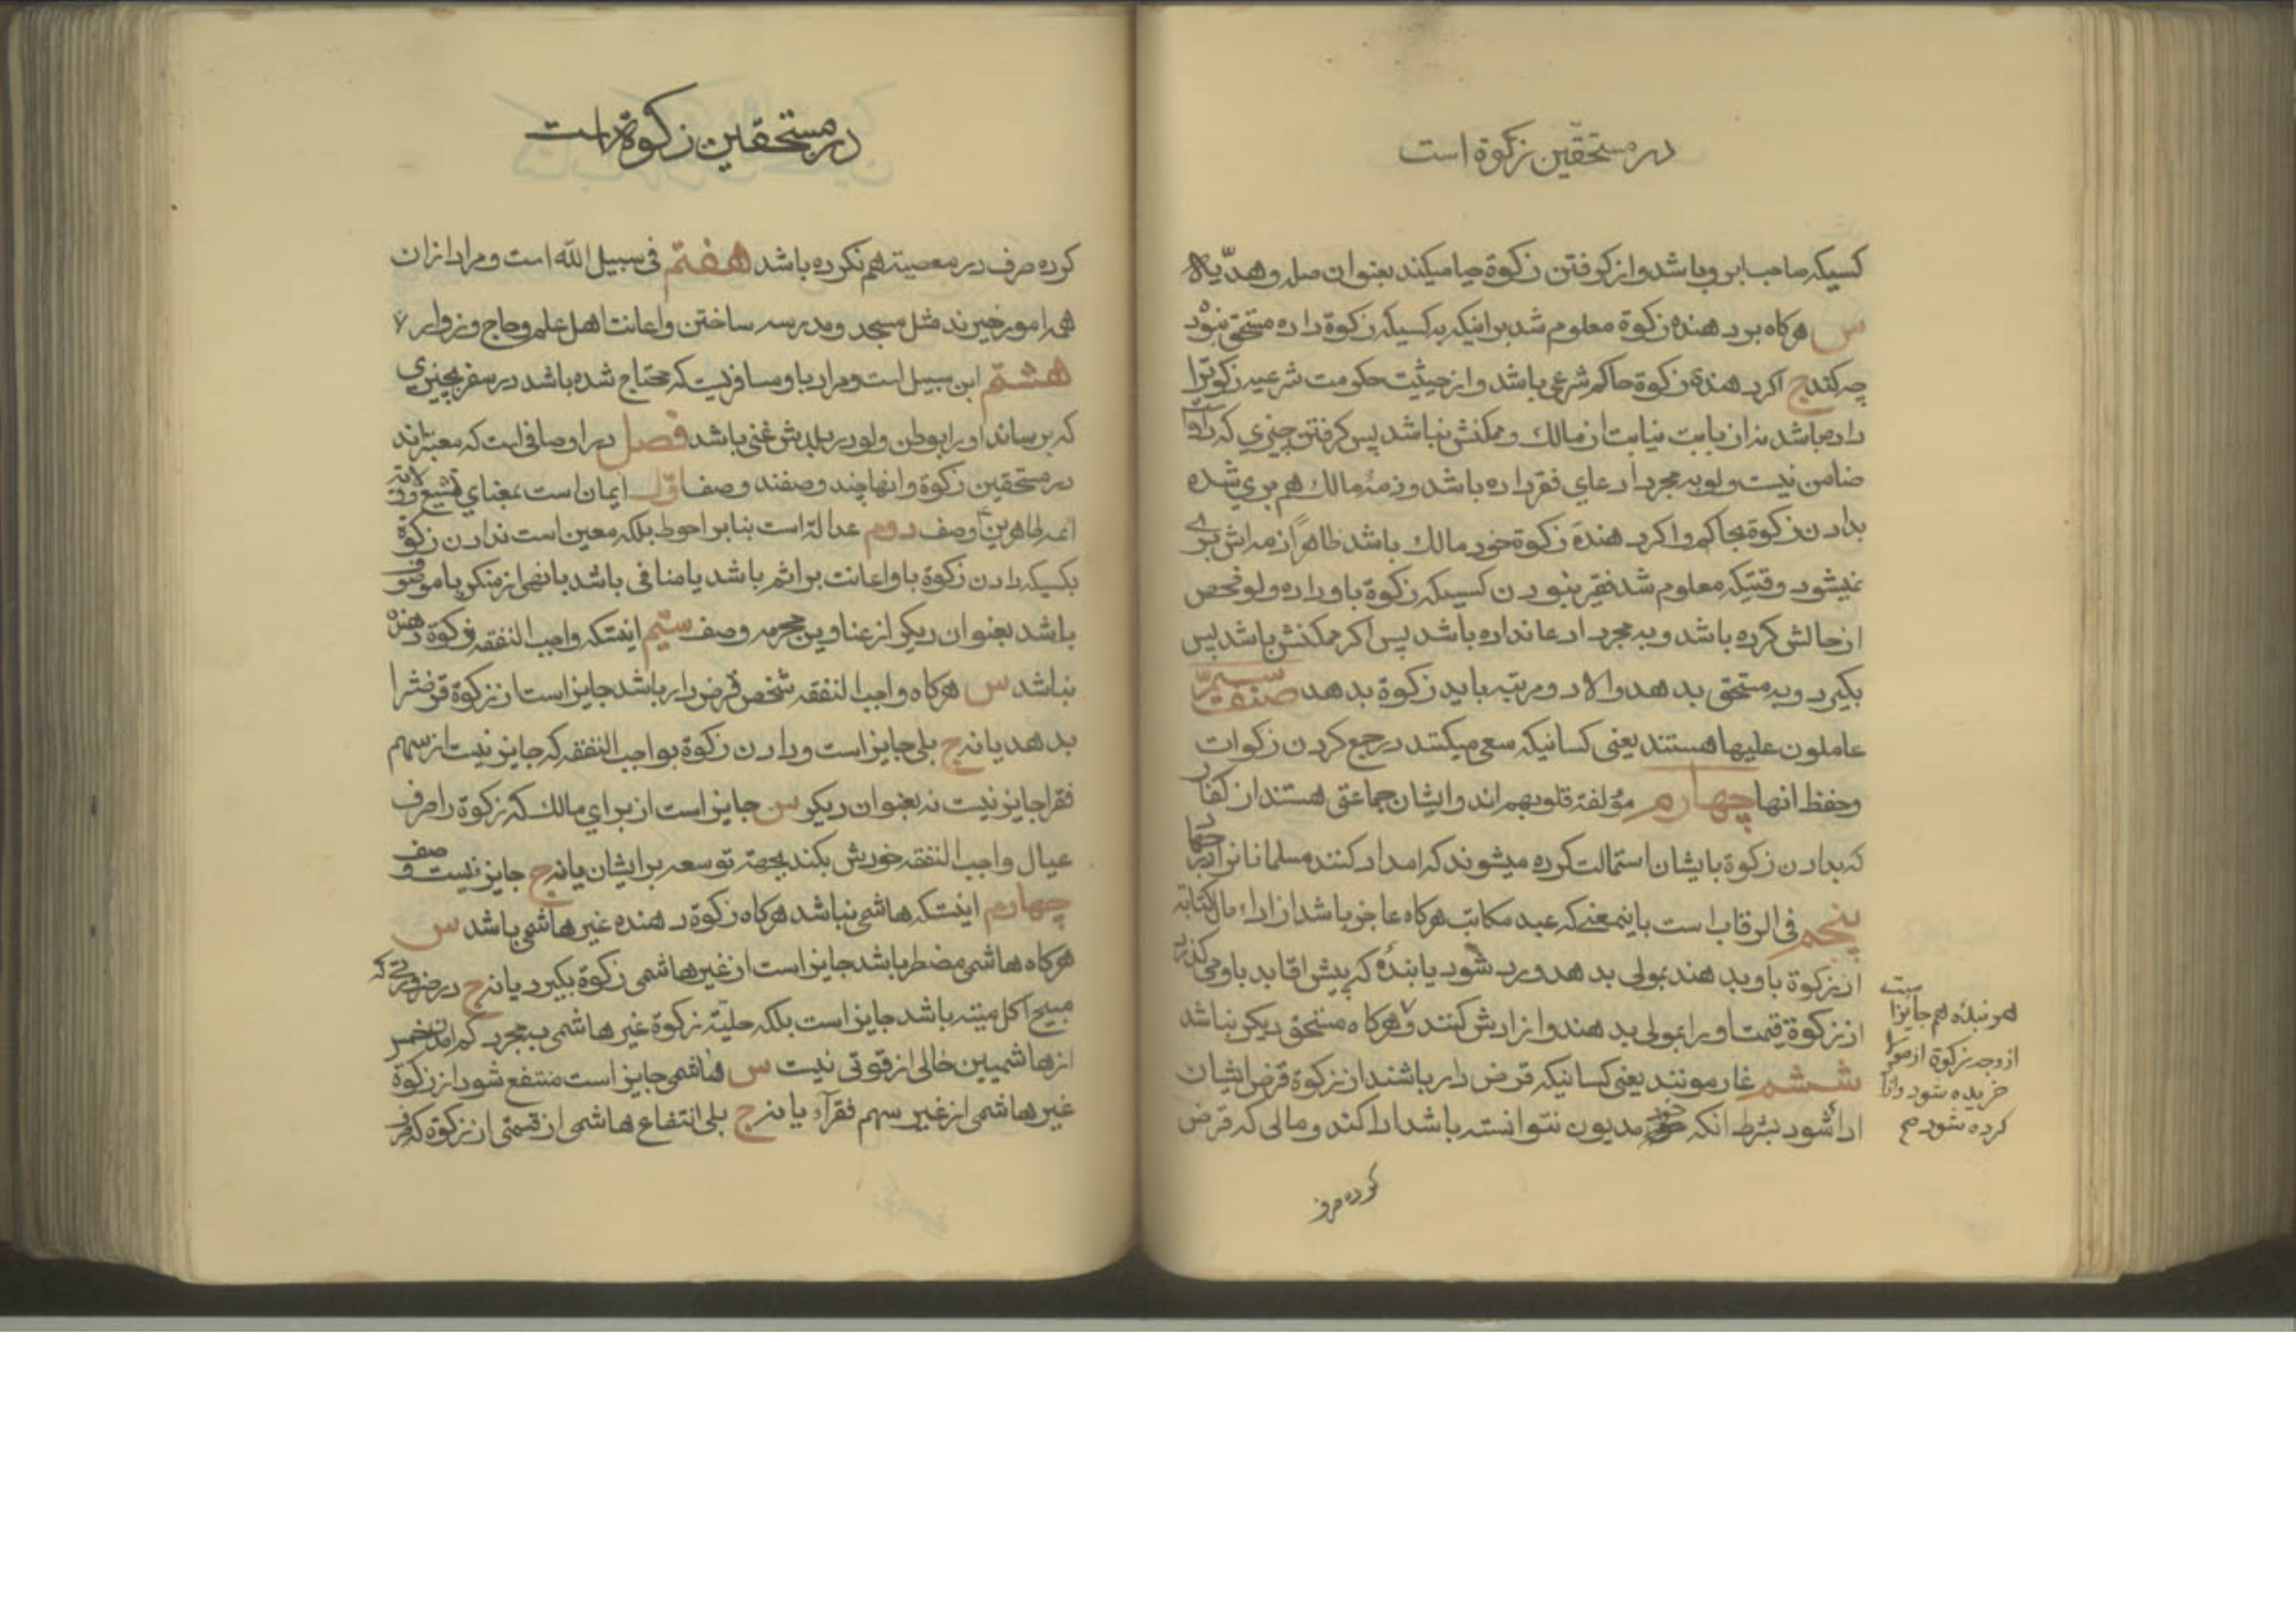 در مستحقّین زکوة است
کسیکه صاحب ابرو باشد و از کرفتن زکوة حیا میکند بعنوان صله و هدّیه
س هرکاه بر دهنده زکوة معلوم شد بر اینکه به کسیکه زکوة داده مستحق نبوده
چه کند ج اکر دهندهٔ زکوة حاکم شرعی باشد و از حیثیت حکومت شرعیه زکوة را
داده باشد نه از بابت نیابت از مالک و ممکنش نباشد پس کرفتن چیزی که داده است
ضامن نیست ولو به مجرد ادعای فقر داده باشد و ذمهٔ مالک هم بری شده
بدادن زکوة بحاکم و اکر دهندهٔ زکوة خود مالک باشد ظاهراً ذمه اش بری
نمیشود وقتیکه معلوم شد فقیر نبودن کسیکه زکوة باو داده ولو فحص
از حالش کرده باشد و به مجرد ادعا نداده باشد پس اکر ممکنش باشد پس
بکیرد و به مستحق بدهد والا دو مرتبه باید زکوة بدهد صنف سیّم
عاملون علیها هستند یعنی کسانیکه سعی میکنند در جمع کردن زکوات
وحفظ انها چهارم مؤلفة قلوبهم اند و ایشان جماعتی هستند از کفار
که بدادن زکوة بایشان استمالت کرده میشوند که امداد کنند مسلمانانرا در جهاد
پنجم فی الرقاب است باینمعنی که عبد مکاتب هرکاه عاجز باشد از اداء مال کتابه
از زکوة باو بدهند بمولی بدهد و رد شود یا بندهٔ که پیش اقا بد باو می کذرد
از زکوة قیمت او را بمولی بدهند و ازادش کنند و هرکاه مستحق دیکر نباشد
ششم غارمونند یعنی کسانیکه قرض دار باشند از زکوة قرض ایشان
ادا شود بشرط انکه خود مدیون نتوانسته باشد ادا کند و مالی که قرض
هر بندهٔ هم جایز است
از وجه زکوة از مولا
خریده شود و ازاد
کرده شود صح
کرده صرف
در مستحقین زکوة است
کرده صرف در معصیة هم نکرده باشد هفتم فی سبیل الله است و مراد از ان
همه امور خیرند مثل مسجد و مدرسه ساختن و اعانت اهل علم و حاج و زوار
هشتم ابن سبیل است و مراد باو مسافریست که محتاج شده باشد در سفر بچیزی
که برساند او را بوطن ولو در بلدش غنی باشد فصل در اوصافی است که معتبراند
در مستحقین زکوة و انها چند وصفند وصف اوّل ایمان است بمعنای تشیع و ولایة
ائمه طاهرین وصف دوم عدالة است بنا بر احوط بلکه معین است ندادن زکوة
بکسیکه دادن زکوة باو اعانت بر اثم باشد یا منافی باشد با نهی از منکر یا موصوف
باشد بعنوان دیکر از عناوین محرمه وصف سیّم اینستکه واجب النفقه زکوة دهنده
نباشد س هرکاه واجب النفقه شخص قرض دار باشد جایز است از زکوة قرضش را
بدهد یا نه ج بلی جایز است و دادن زکوة بواجب النفقه که جایز نیست از سهم
فقرا جایز نیست نه بعنوان دیکر س جایز است از برای مالک که زکوة را صرف
عیال واجب النفقه خودش بکند بجهة توسعه بر ایشان یا نه ج جایز نیست وصف
چهارم اینستکه هاشمی نباشد هرکاه زکوة دهنده غیر هاشمی باشد س
هرکاه هاشمی مضطر باشد جایز است از غیر هاشمی زکوة بکیرد یا نه ج در ضرورتی که
مبیح اکل میته باشد جایز است بلکه حلیّة زکوة غیر هاشمی بمجرد کم امدن خمس
از هاشمیین خالی از قوتی نیست س هاشمی جایز است منتفع شود از زکوة
غیر هاشمی از غیر سهم فقرآء یا نه ج بلی انتفاع هاشمی از قسمتی از زکوة که